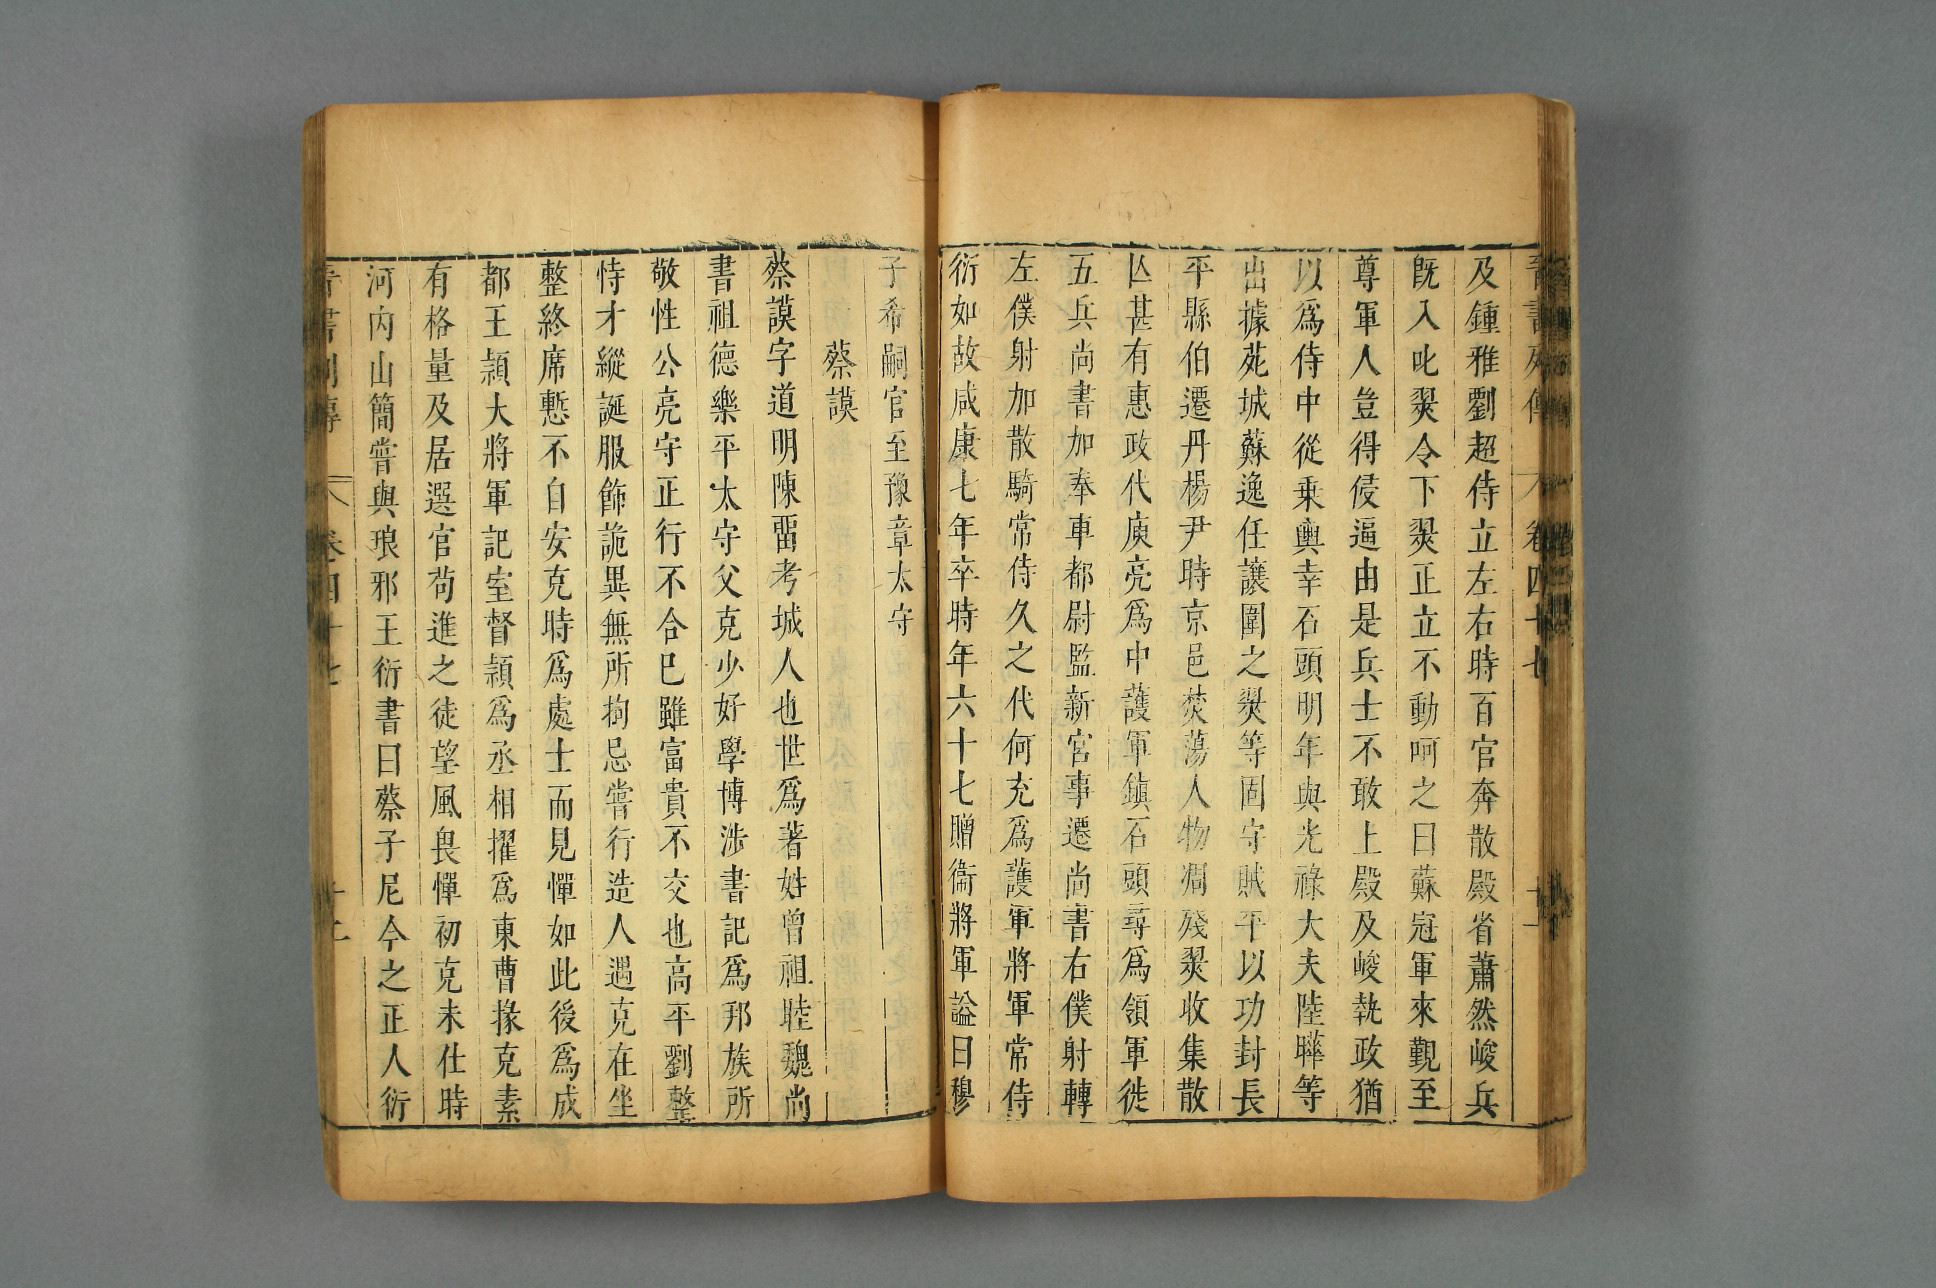 晉書列傳 卷四十七 十一
及鍾雅劉超侍立左右時百官奔散殿省蕭然峻兵
旣入叱翜令下翜正立不動呵之曰蘇冠軍來覲至
尊軍人豈得侵逼由是兵士不敢上殿及峻執政猶
以爲侍中從乗輿幸石頭明年與光祿大夫陸曄等
出據苑城蘇逸任讓圍之翜等固守賊平以功封長
平縣伯遷丹楊尹時京邑焚蕩人物凋殘翜收集散
亾甚有惠政代庾亮爲中護軍鎮石頭尋爲領軍徙
五兵尚書加奉車都尉監新宮事遷尚書右僕射轉
左僕射加散騎常侍久之代何充爲護軍將軍常侍
衍如故咸康七年卒時年六十七贈衞將軍謚曰穆
子希嗣官至豫章太守
蔡謨
蔡謨字道明陳畱考城人也世爲著姓曾祖睦魏尚
書祖德樂平太守父克少好學博涉書記爲邦族所
敬性公亮守正行不合已雖富貴不交也高平劉整
恃才縱誕服飾詭異無所拘忌嘗行造人遇克在坐
整終席慙不自安克時爲處士而見憚如此後爲成
都王頴大將軍記室督頴爲丞相擢爲東曹掾克素
有格量及居選官苟進之徒望風畏憚初克未仕時
河內山簡嘗與琅邪王衍書曰蔡子尼今之正人衍
晉書列傳 卷四十七 十一